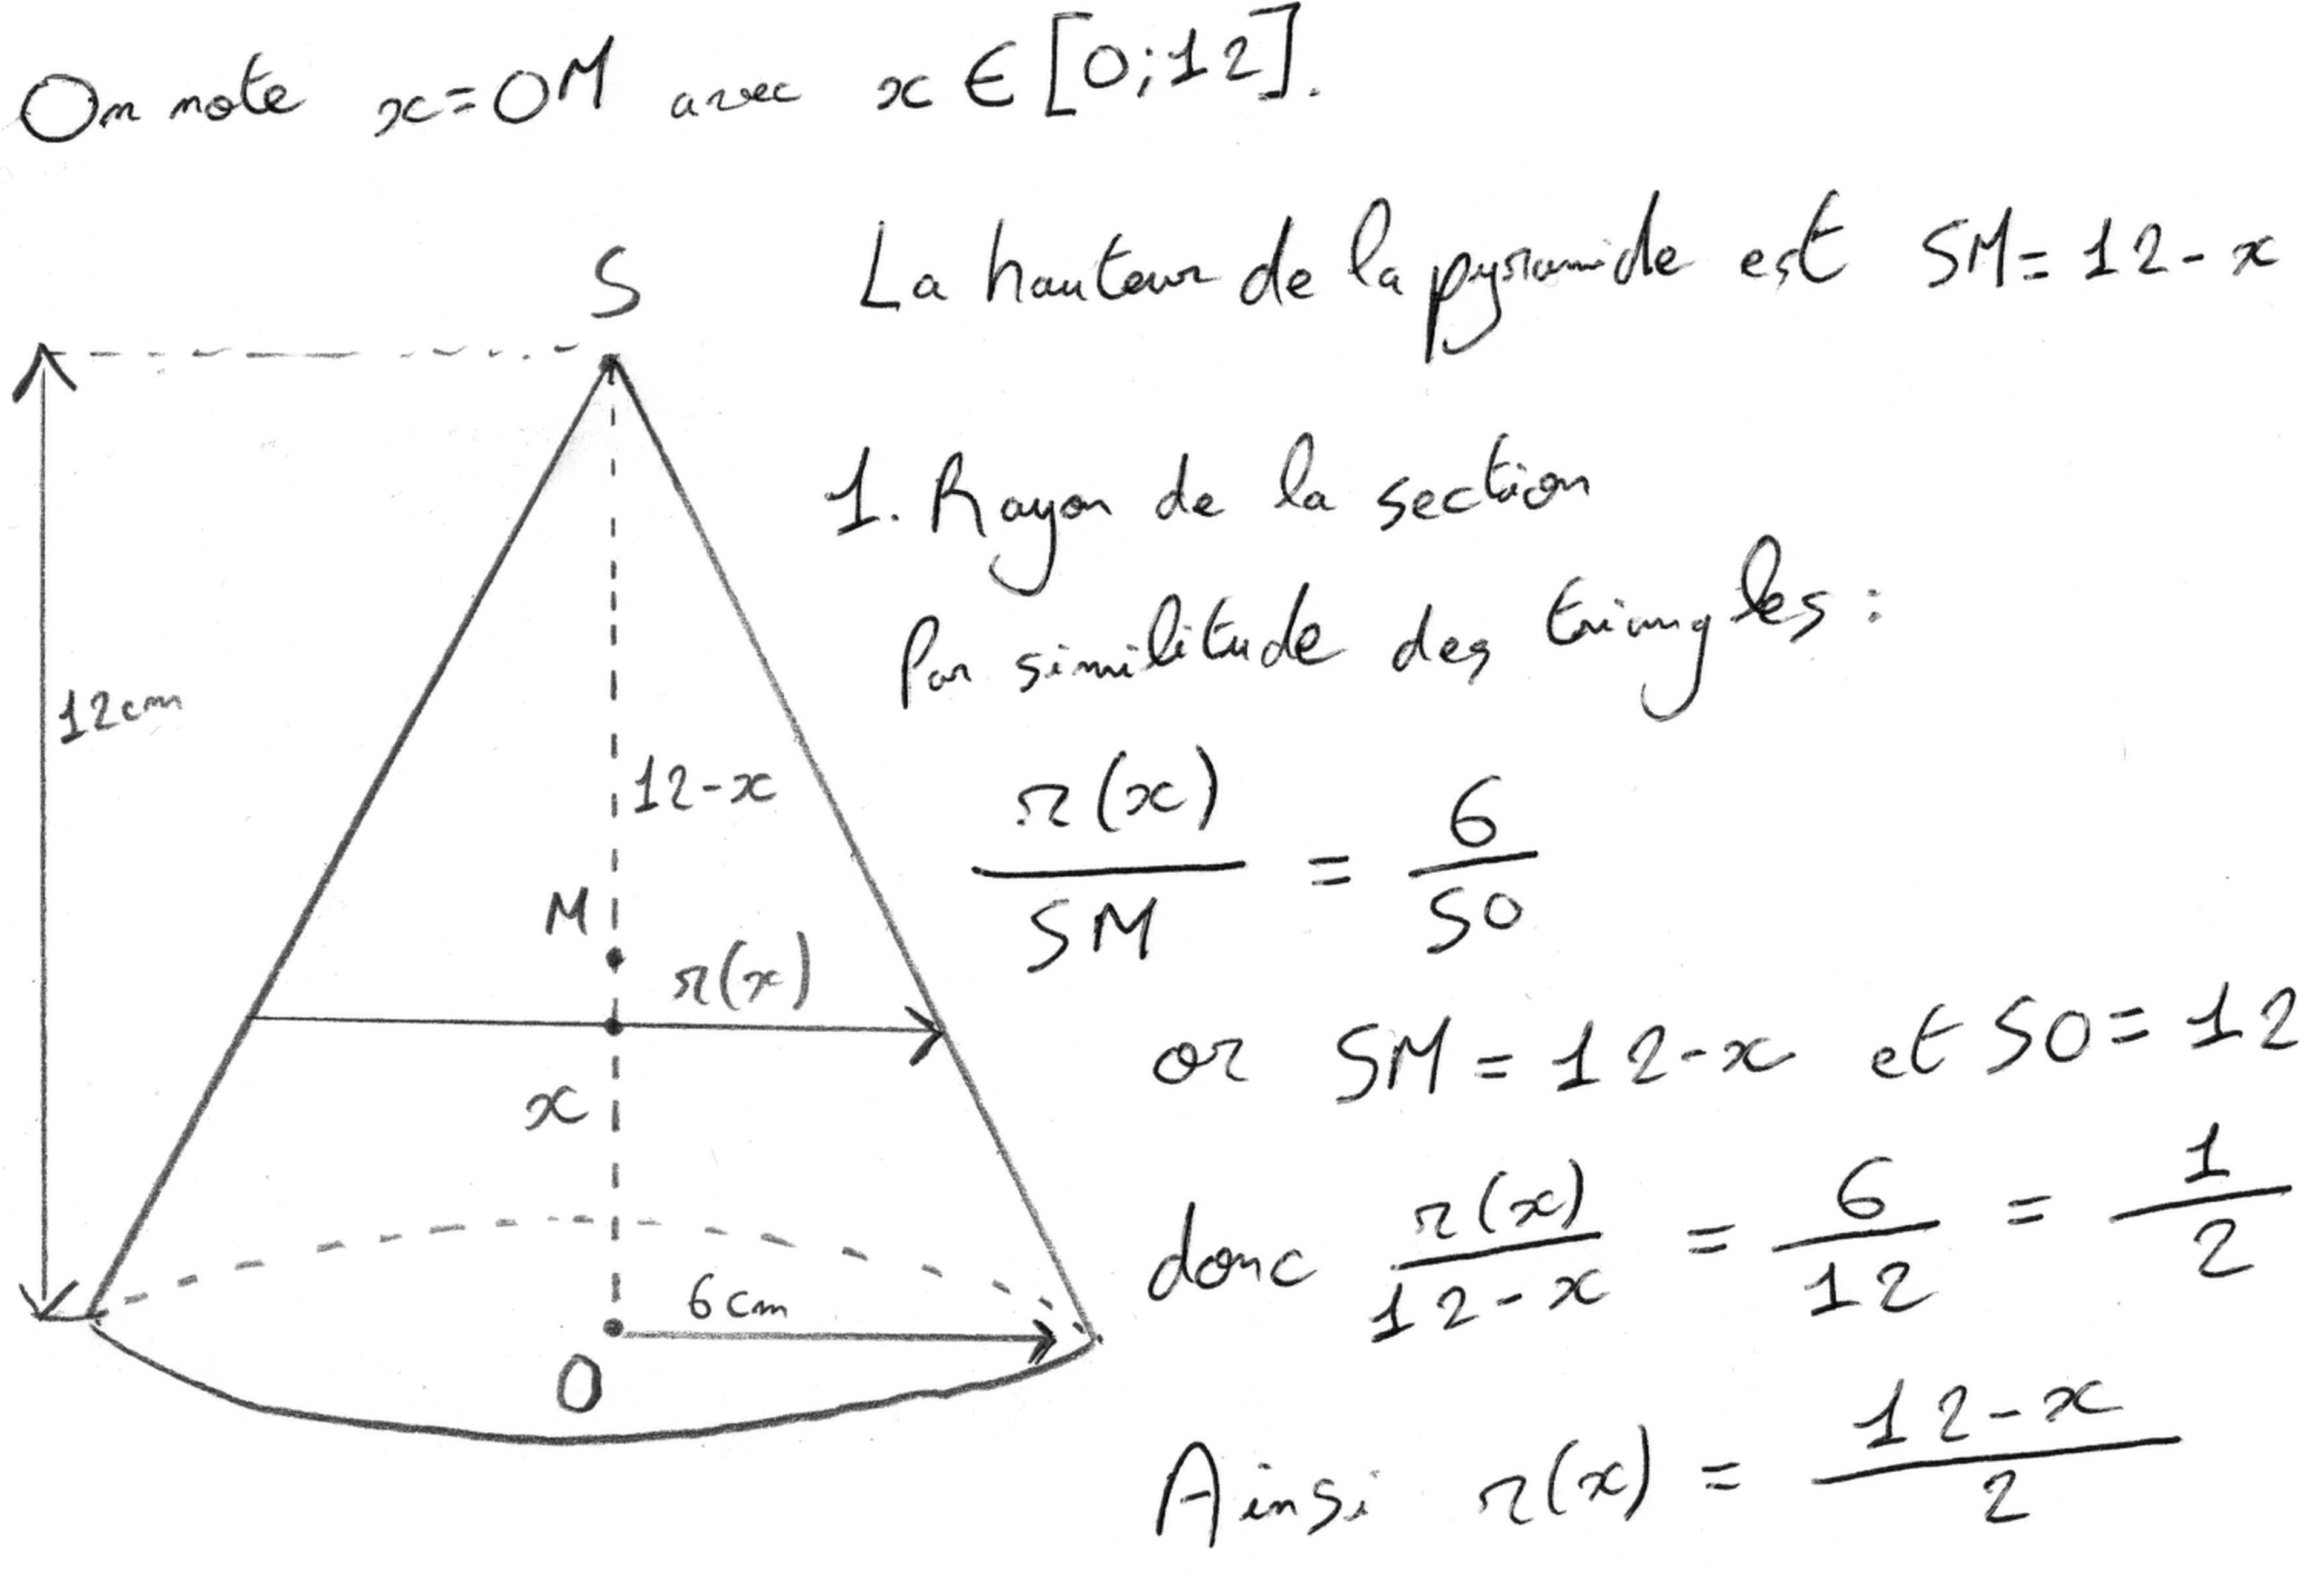 On note x = OM avec x ∈ [0;12].
La hauteur de la pyramide est SM = 12 - x
S
1. Rayon de la section
Par similitude des triangles :
12cm
12-x
r(x)/SM = 6/SO
M
r(x)
or SM = 12-x et SO = 12
x
donc r(x)/(12-x) = 6/12 = 1/2
6cm
O
Ainsi r(x) = (12-x)/2